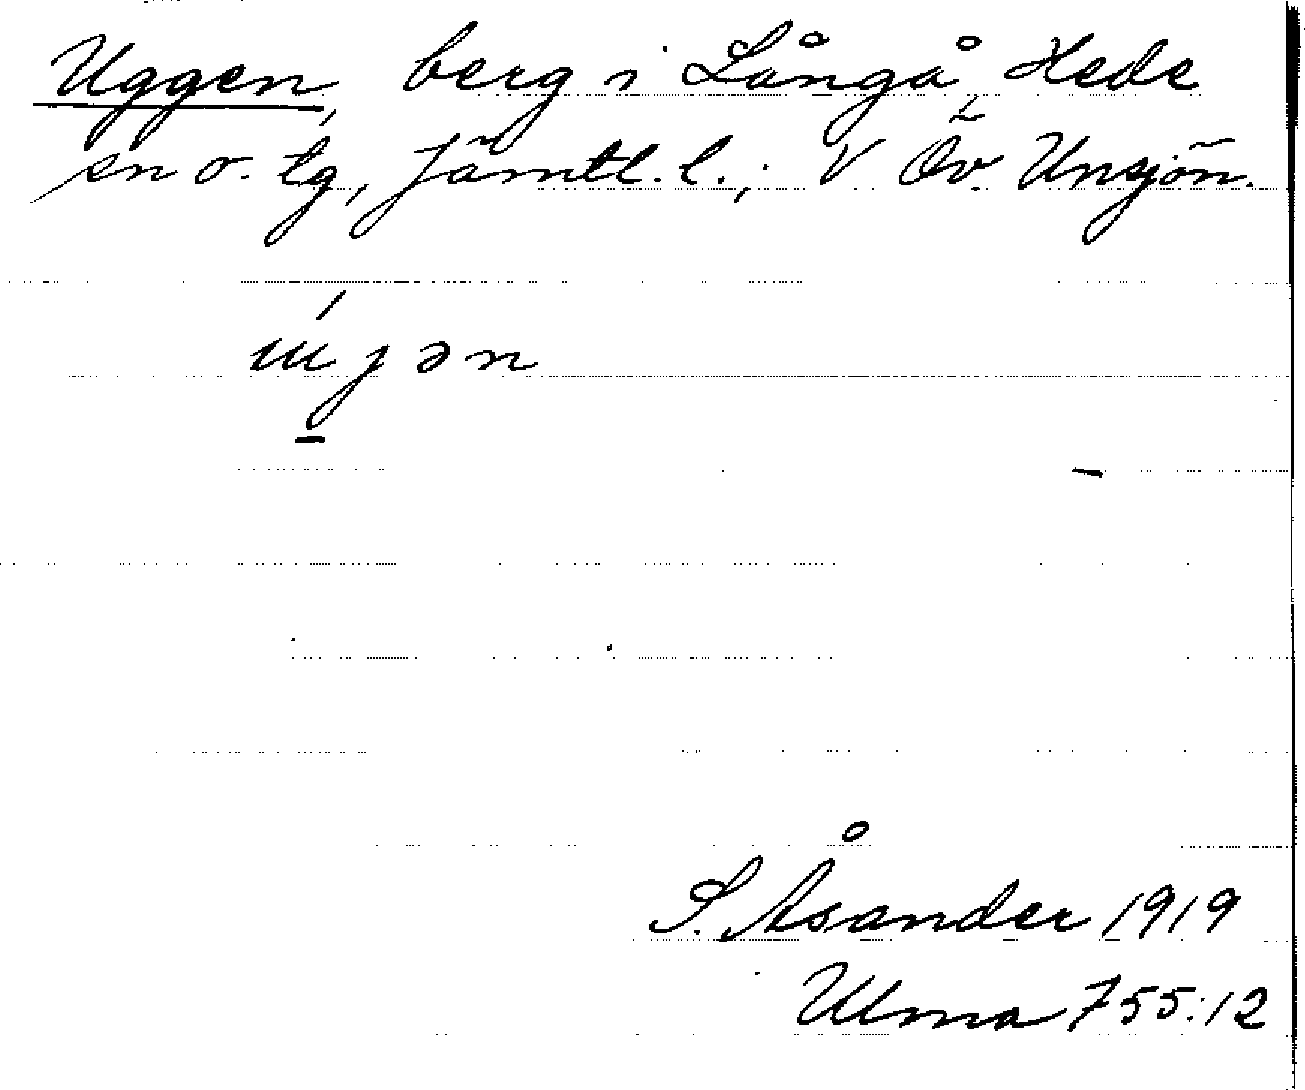 Uggen, berg i Långå, Hede
sn o. tg, Jämtl. l.; V Öv. Unsjön.
S. Åsander 1919
Ulma 755:12